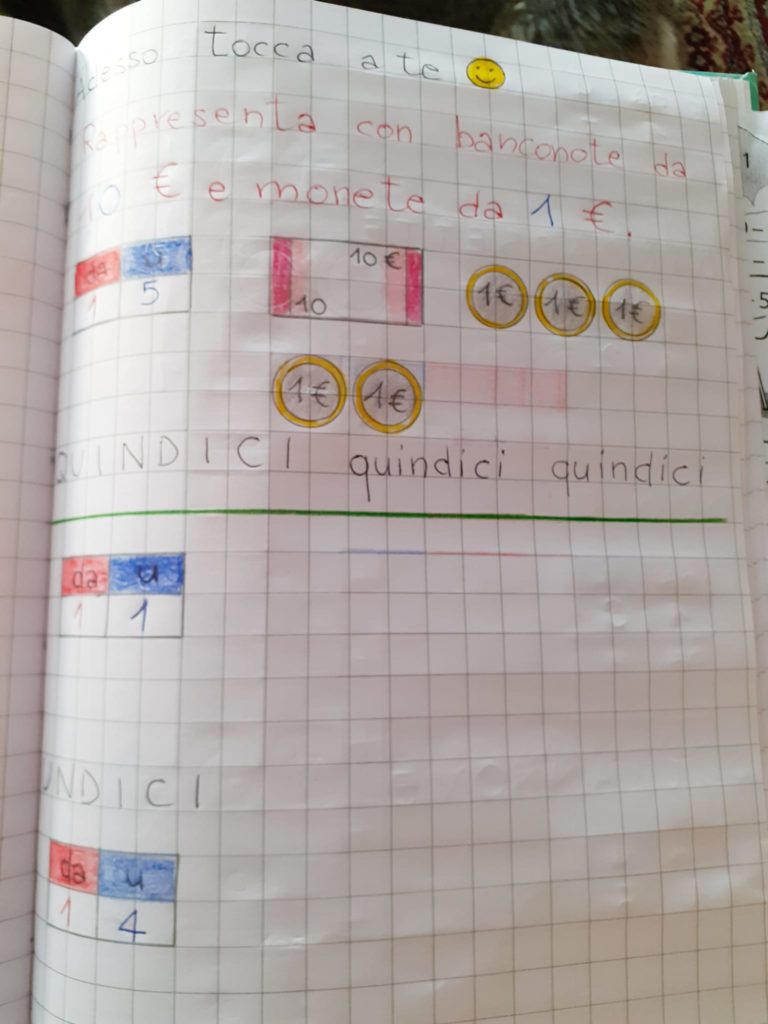 Adesso tocca a te
Rappresenta con banconote da
10 € e monete da 1 €.
da u
1 5
10 €
10
1€ 1€ 1€
1€ 1€
QUINDICI quindici quindici
da u
1 1
UNDICI
da u
1 4